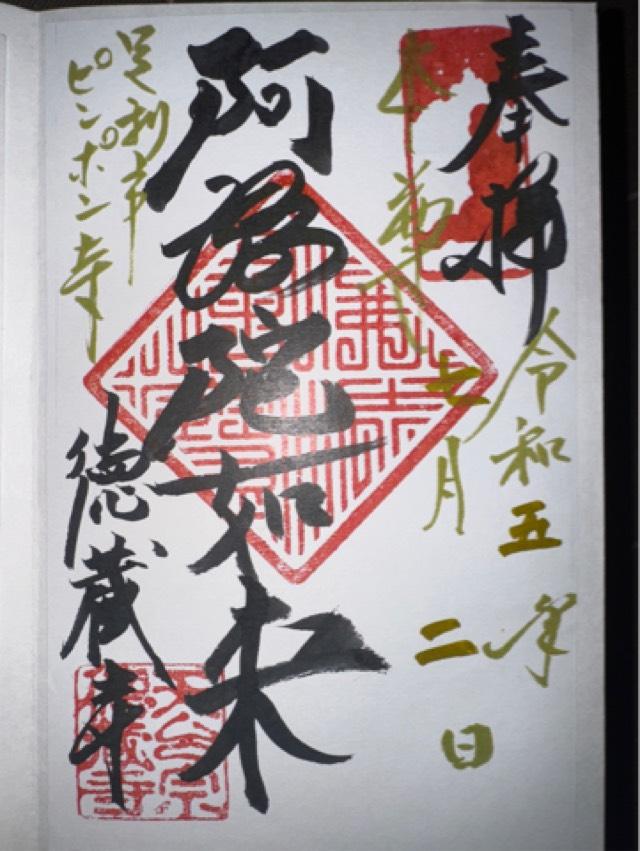 奉拝
令和五年
七月二日
阿弥陀如来
足利市
ピンポン寺
徳蔵寺